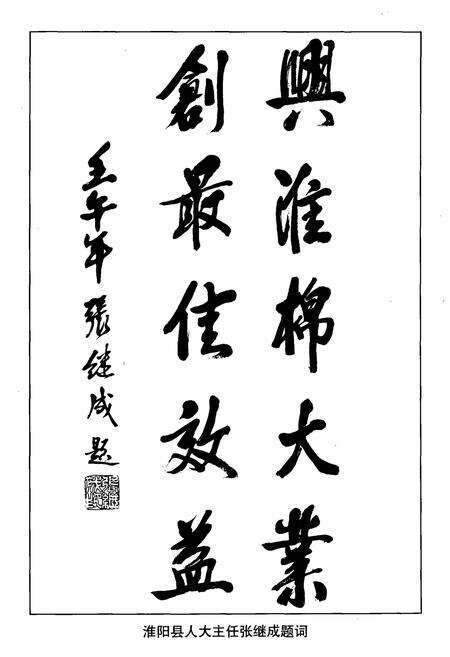 興淮棉大業
創最佳效益
壬午年 張继成題
淮阳县人大主任张继成题词